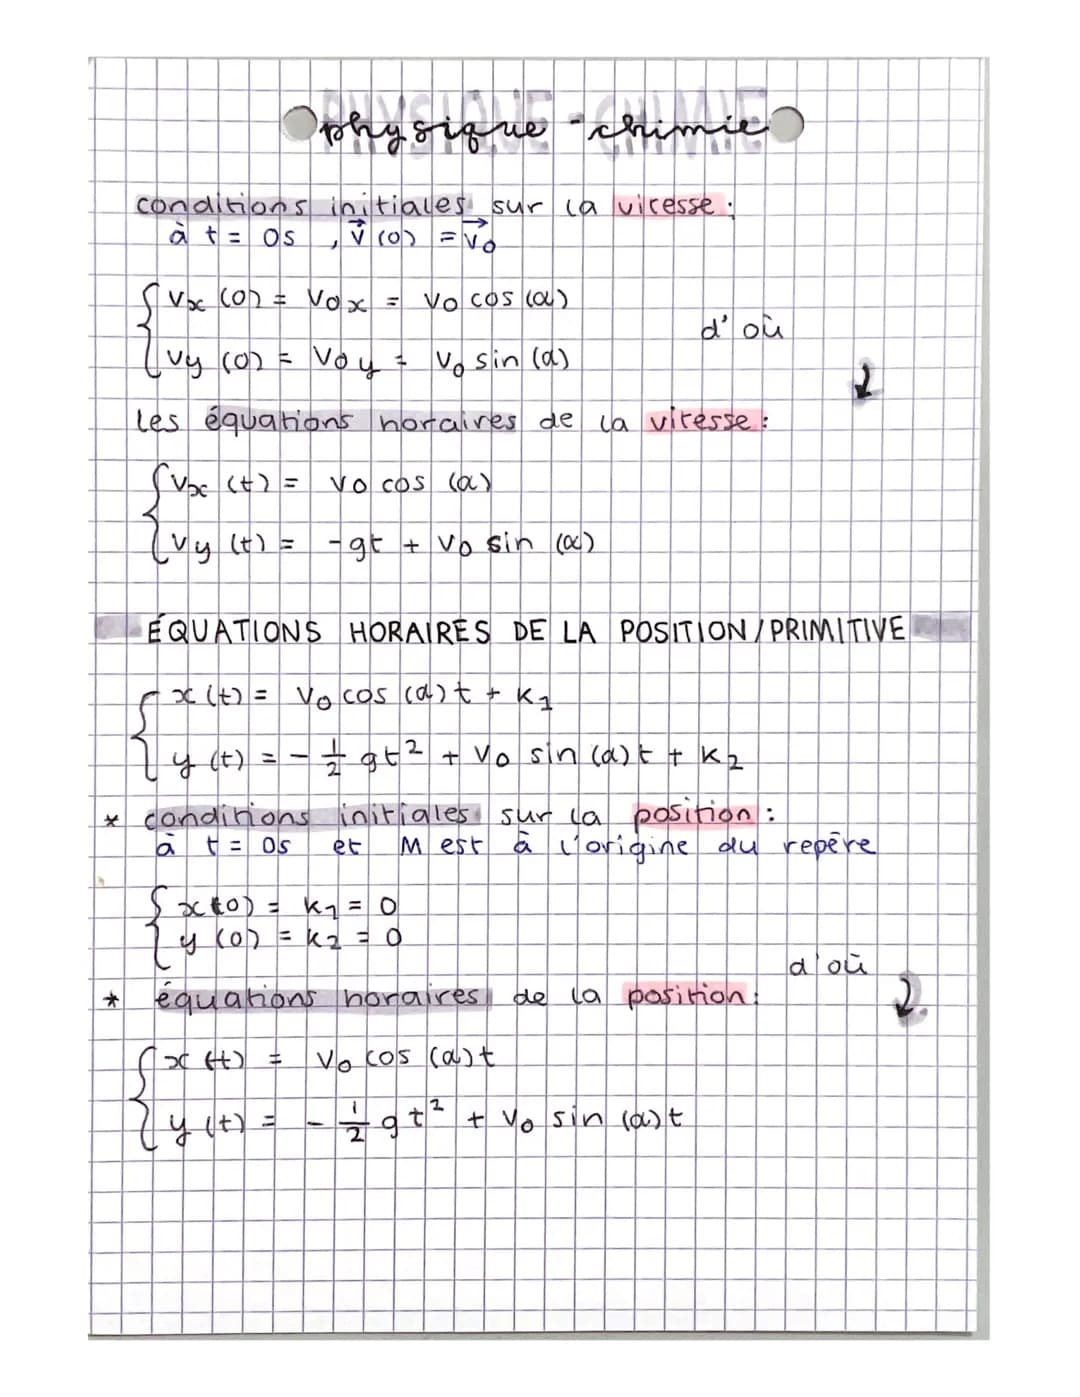 PHYSIQUE-CHIMIE
physique-chimie
conditions initiales sur la vitesse :
à t = 0s , v⃗ (0) = v⃗₀
{ vx (0) = v₀x = v₀ cos (α)
d'où
vy (0) = v₀y = v₀ sin (α)
les équations horaires de la vitesse :
{ vx (t) = v₀ cos (α)
vy (t) = -gt + v₀ sin (α)
ÉQUATIONS HORAIRES DE LA POSITION/PRIMITIVE
{ x (t) = v₀ cos (α) t + K₁
y (t) = - 1/2 gt² + v₀ sin (α) t + K₂
* conditions initiales sur la position :
à t = 0s et M est à l'origine du repère
{ x(0) = K₁ = 0
y (0) = K₂ = 0
d'où
* équations horaires de la position :
{ x (t) = v₀ cos (α) t
y (t) = - 1/2 gt² + v₀ sin (α) t